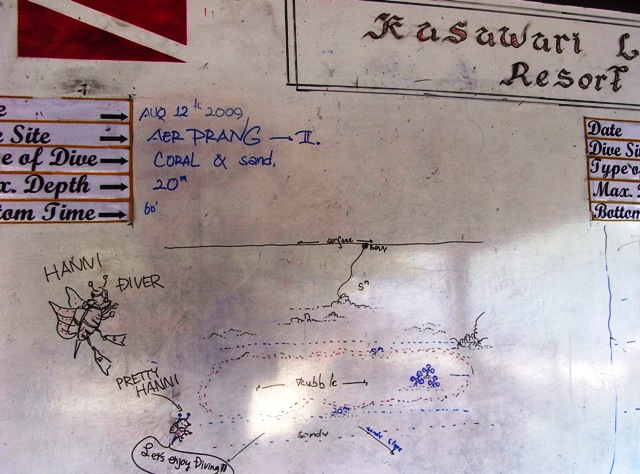 Kasawari L
Resort
e → AUG 12th 2009
e Site → AER PRANG → II.
e of Dive → CORAL & sand.
x. Depth → 20m
tom Time → 60'
Date
Dive Si
Type o
Max.
Bottom
surface
buoy
5m
HANNI
DIVER
PRETTY
HANNI
Rubble
20m
sandy
Lets enjoy Diving!!